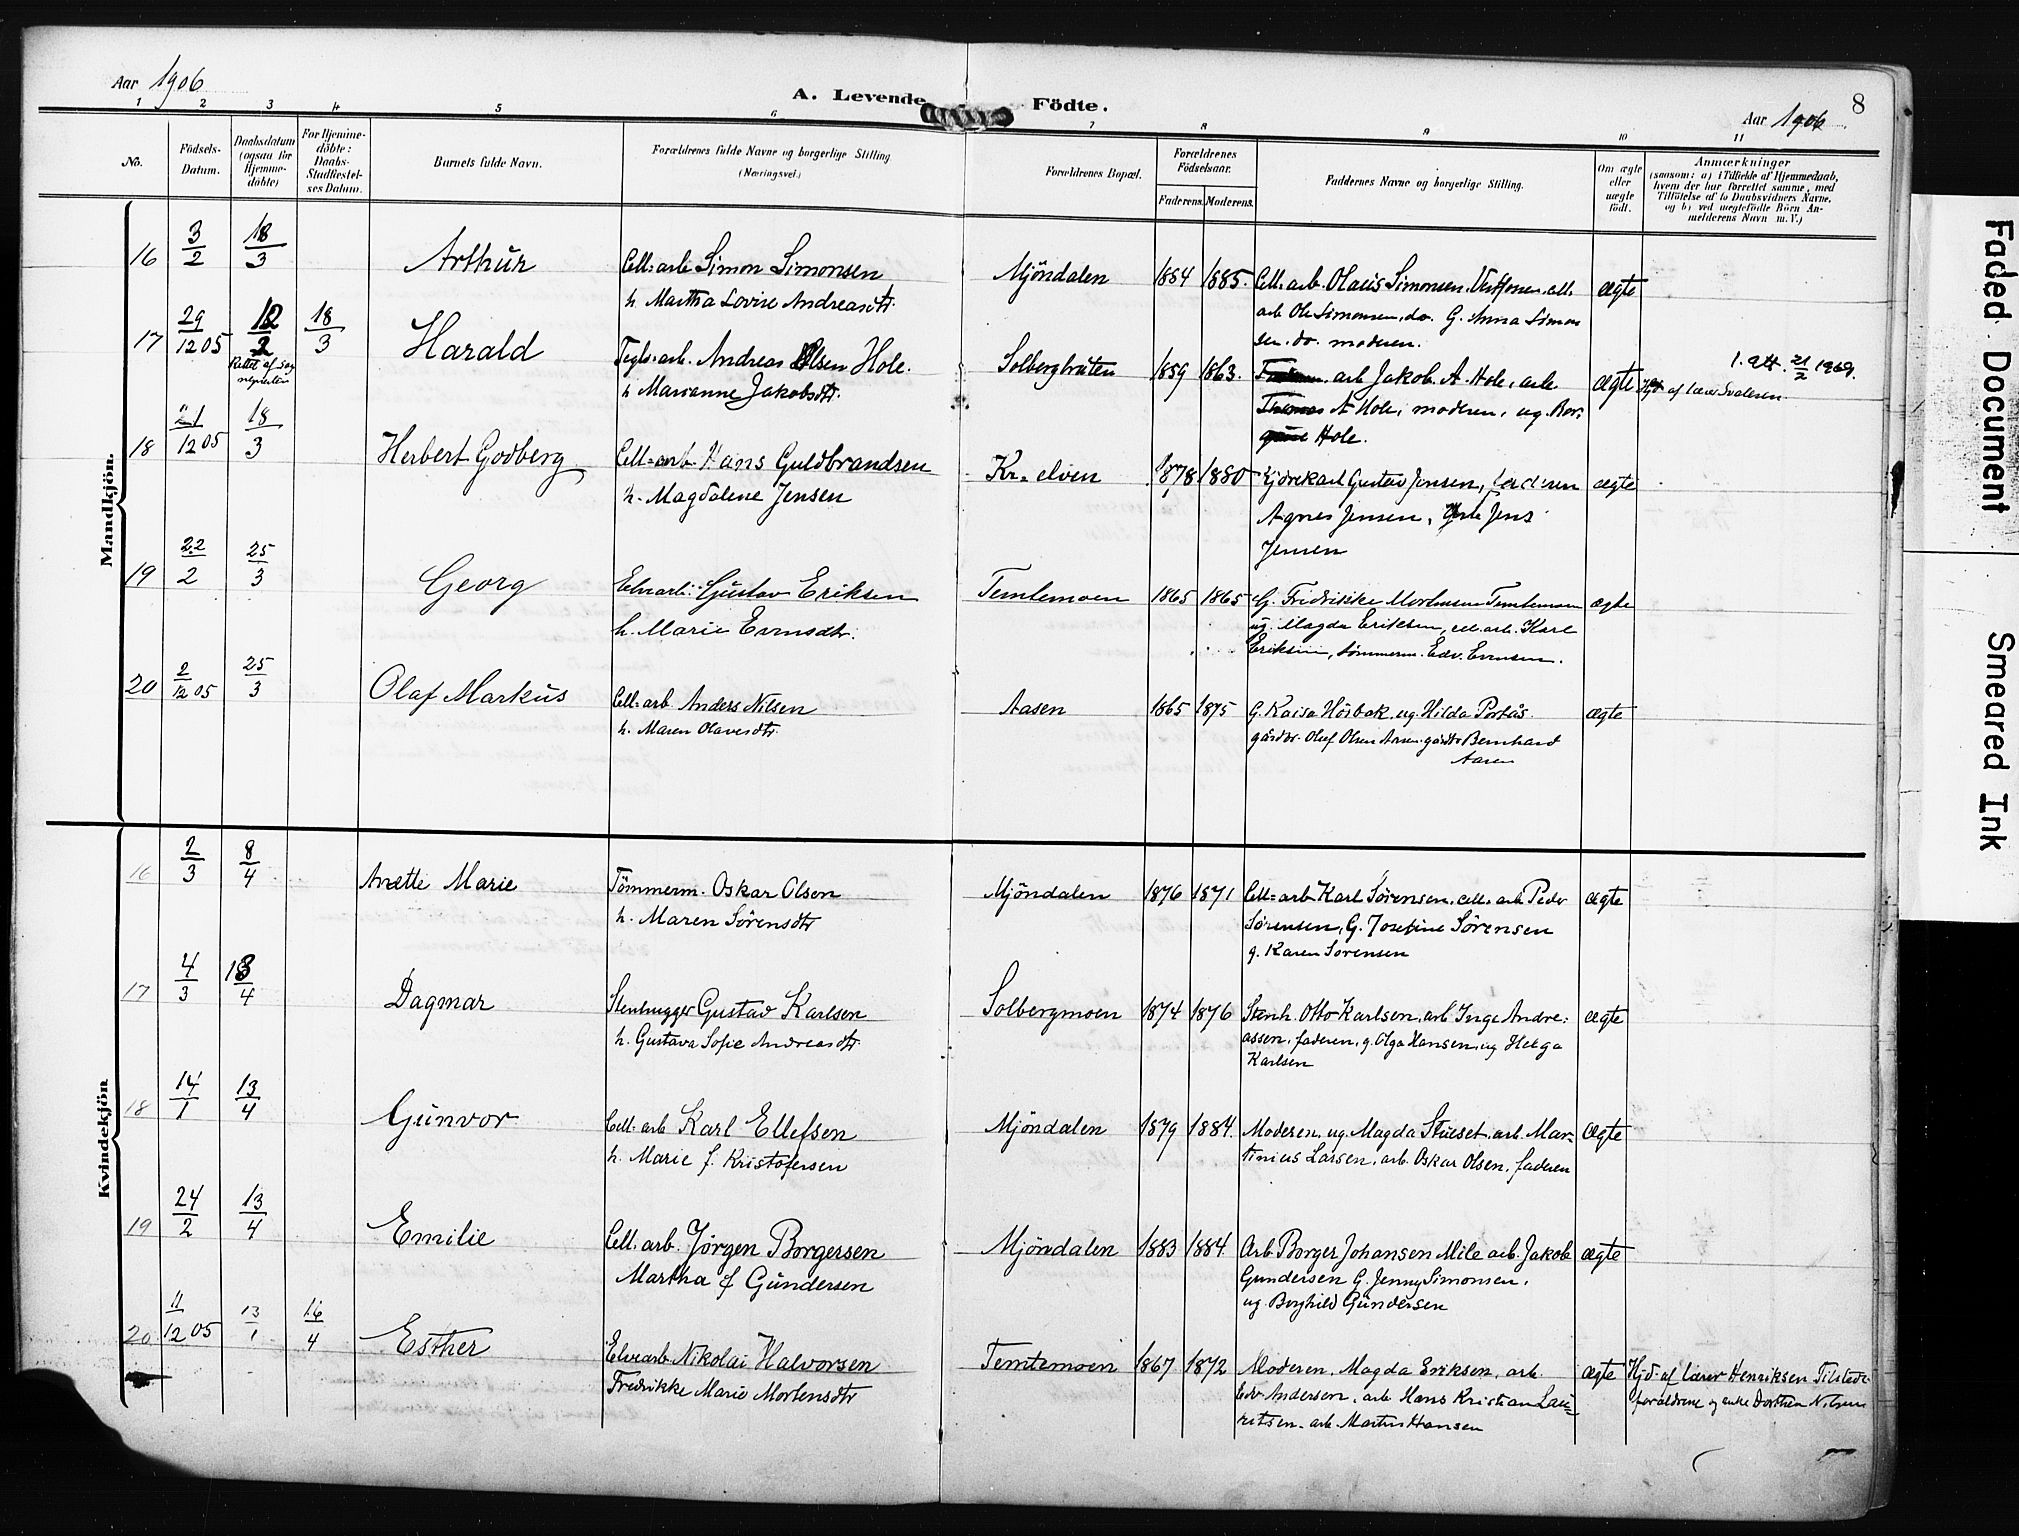 Aar 1906
A. Levende Födte.
8
Aar 1906
1 2 3 4 5 6 7 8 9 10 11
No.
Födsels-Datum.
Daabsdatum (ogsaa for Hjemmedöbte)
For Hjemmedöbte: Daabs-Stadfæstelses Datum.
Barnets fulde Navn.
Forældrenes fulde Navne og borgerlige Stilling. (Næringsvei.)
Forældrenes Bopæl.
Forældrenes Födselsaar.
Faderens. Moderens.
Faddernes Navne og borgerlige Stilling.
Om ægte eller uægte födt.
Anmærkninger
(saasom: a) i Tilfælde af Hjemmedaab,
hvem der har forrettet samme, med
Tilföielse af to Daabsvidners Navne,
og b) ved uægtefödte Börn Anmelderens Navn m. V.)
Mandkjön.
16 3/2 18/3 Arthur Cell. arb. Simon Simonsen Mjöndalen 1884 1885. Cell. arb. Olaus Simonsen, cell. ægte
h. Martha Lovise Andreasdtr. arb Ole Simonsen, do. G. Anna Simon
sen. do. moderen.
17 29/12 05 18/3 Harald Teglv. arb. Andreas Olsen Hole. Solbergbråten 1859 1863. arb Jakob A. Hole, arb ægte
h. Marianne Jakobsdtr. Thomas A Hole, moderen, ug. Bor-
Hole.
Hjd af lærer
18 21/12 05 18/3 Herbert Godberg Cell. arb. Hans Guldbrandsen Kr. elven 1878 1880 Kjörekarl Gustav Jensen, faderen ægte
h. Magdalene Jensen Agnes Jensen, Jens
Jensen
19 22/2 25/3 Georg Elvearb. Gustav Eriksen Temtemoen 1865 1865 G. Fredrikke Mortensen Temtemoen ægte
h. Marie Evensdtr. ug. Magda Eriksen, cell. arb. Karl
Eriksen, tömmerm. Edv. Evensen.
20 2/12 05 25/3 Olaf Markus Cell. arb. Anders Nilsen Aasen 1865 1875 G. Kaisa Hörbak, ug. Hilda Portås. ægte
h. Maren Olavesdtr. gårdbr. Oluf Olsen Aasen. gårdbr Bernhard
Aasen
Kvindekjön
16 2/3 8/4 Anette Marie Tömmerm. Oskar Olsen Mjöndalen 1876 1871 Cell. arb Karl Sørensen, cell. arb Peder ægte
h. Maren Sørensdtr Sørensen, G. Josefine Sørensen
g. Karen Sørensen
17 4/3 18/4 Dagmar Stenhugger Gustav Karlsen Solbergmoen 1874 1876 Stenh. Otto Karlsen, arb Inge Andre- ægte
h. Gustava Sofie Andreasdtr. assen, faderen, g. Olga Hansen, ug Helga
Karlsen
18 14/1 13/4 Gunvor Cell. arb Karl Ellefsen Mjöndalen 1879 1884. Moderen, ug. Magda Stueset, arb. Mar- ægte
h. Marie f. Kristofersen tinius Larsen, arb. Oskar Olsen, faderen
19 24/2 13/4 Emilie Cell. arb. Jörgen Borgersen Mjöndalen 1883 1884. Arb Borger Johansen Mile arb. Jakob ægte
Martha f Gundersen Gundersen G. Jenny Simonsen,
ug. Borghild Gundersen
20 11/12 05 13/1 16/4 Esther Elvearb Nikolai Halvorsen Temtemoen 1867 1872 Moderen, Magda Eriksen, arb. ægte Hjd. af lærer Henriksen Tilstede
Fredrikke Marie Mortensdtr Edv. Andersen, arb Hans Kristian Lau- forældrene og enke Dorthea Nilsen
ritsen. arb. Martin Hansen
Faded Document
Smeared Ink